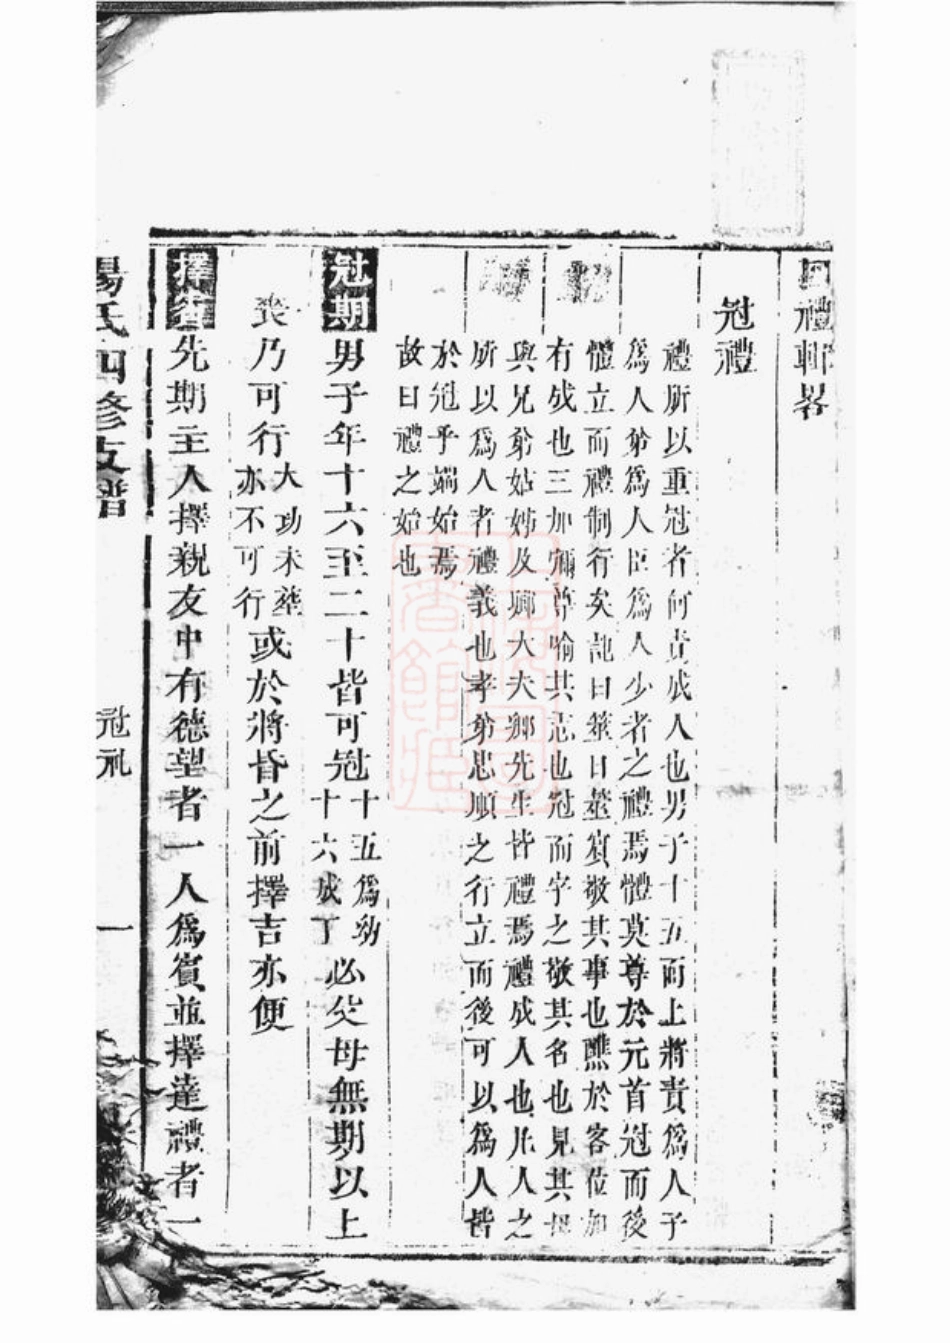 四禮輯畧
冠禮
禮所以重冠者何責成人也男子十五而上將責爲人子
爲人弟爲人臣爲人少者之禮焉體莫尊於元首冠而後
體立而禮制行矣記曰筮日筮賓敬其事也醮於客位加
有成也三加彌尊喻其志也冠而字之敬其名也見其母
與兄弟姑姊及鄉大夫鄉先生皆禮焉禮成人也凡人之
所以爲人者禮義也孝弟忠順之行立而後可以爲人皆
於冠乎端始焉
故曰禮之始也
冠期男子年十六至二十皆可冠十五爲幼十六成丁必父母無期以上
喪乃可行大功未塟亦不可行或於將昏之前擇吉亦便
擇賓先期主人擇親友中有德望者一人爲賓並擇達禮者一
楊氏四修支譜
冠礼
一